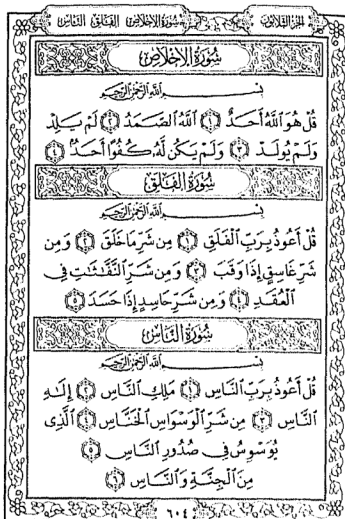 الجزء الثلاثون سورة الإخلاص الفلق الناس
سُورَةُ الإِخْلَاصِ
بِسْمِ اللَّهِ الرَّحْمَٰنِ الرَّحِيمِ
قُلْ هُوَ اللَّهُ أَحَدٌ ۝١ اللَّهُ الصَّمَدُ ۝٢ لَمْ يَلِدْ
وَلَمْ يُولَدْ ۝٣ وَلَمْ يَكُن لَّهُ كُفُوًا أَحَدٌ ۝٤
سُورَةُ الفَلَقِ
بِسْمِ اللَّهِ الرَّحْمَٰنِ الرَّحِيمِ
قُلْ أَعُوذُ بِرَبِّ الْفَلَقِ ۝١ مِن شَرِّ مَا خَلَقَ ۝٢ وَمِن
شَرِّ غَاسِقٍ إِذَا وَقَبَ ۝٣ وَمِن شَرِّ النَّفَّاثَاتِ فِي
الْعُقَدِ ۝٤ وَمِن شَرِّ حَاسِدٍ إِذَا حَسَدَ ۝٥
سُورَةُ النَّاسِ
بِسْمِ اللَّهِ الرَّحْمَٰنِ الرَّحِيمِ
قُلْ أَعُوذُ بِرَبِّ النَّاسِ ۝١ مَلِكِ النَّاسِ ۝٢ إِلَٰهِ
النَّاسِ ۝٣ مِن شَرِّ الْوَسْوَاسِ الْخَنَّاسِ ۝٤ الَّذِي
يُوَسْوِسُ فِي صُدُورِ النَّاسِ ۝٥
مِنَ الْجِنَّةِ وَالنَّاسِ ۝٦
٦٠٤